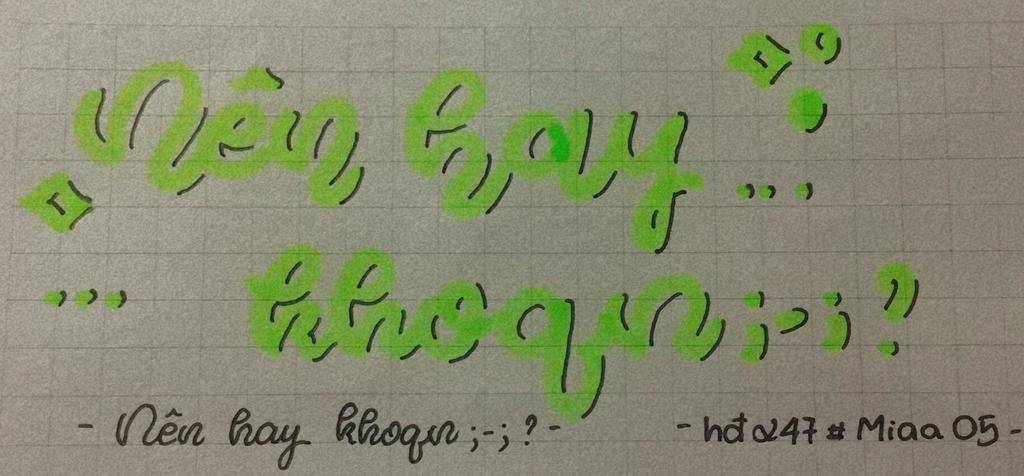 Nên hay ...
... khoqn ;-; ?
- Nên hay khoqn ;-; ? - - hđ α247 # Miaa 05 -